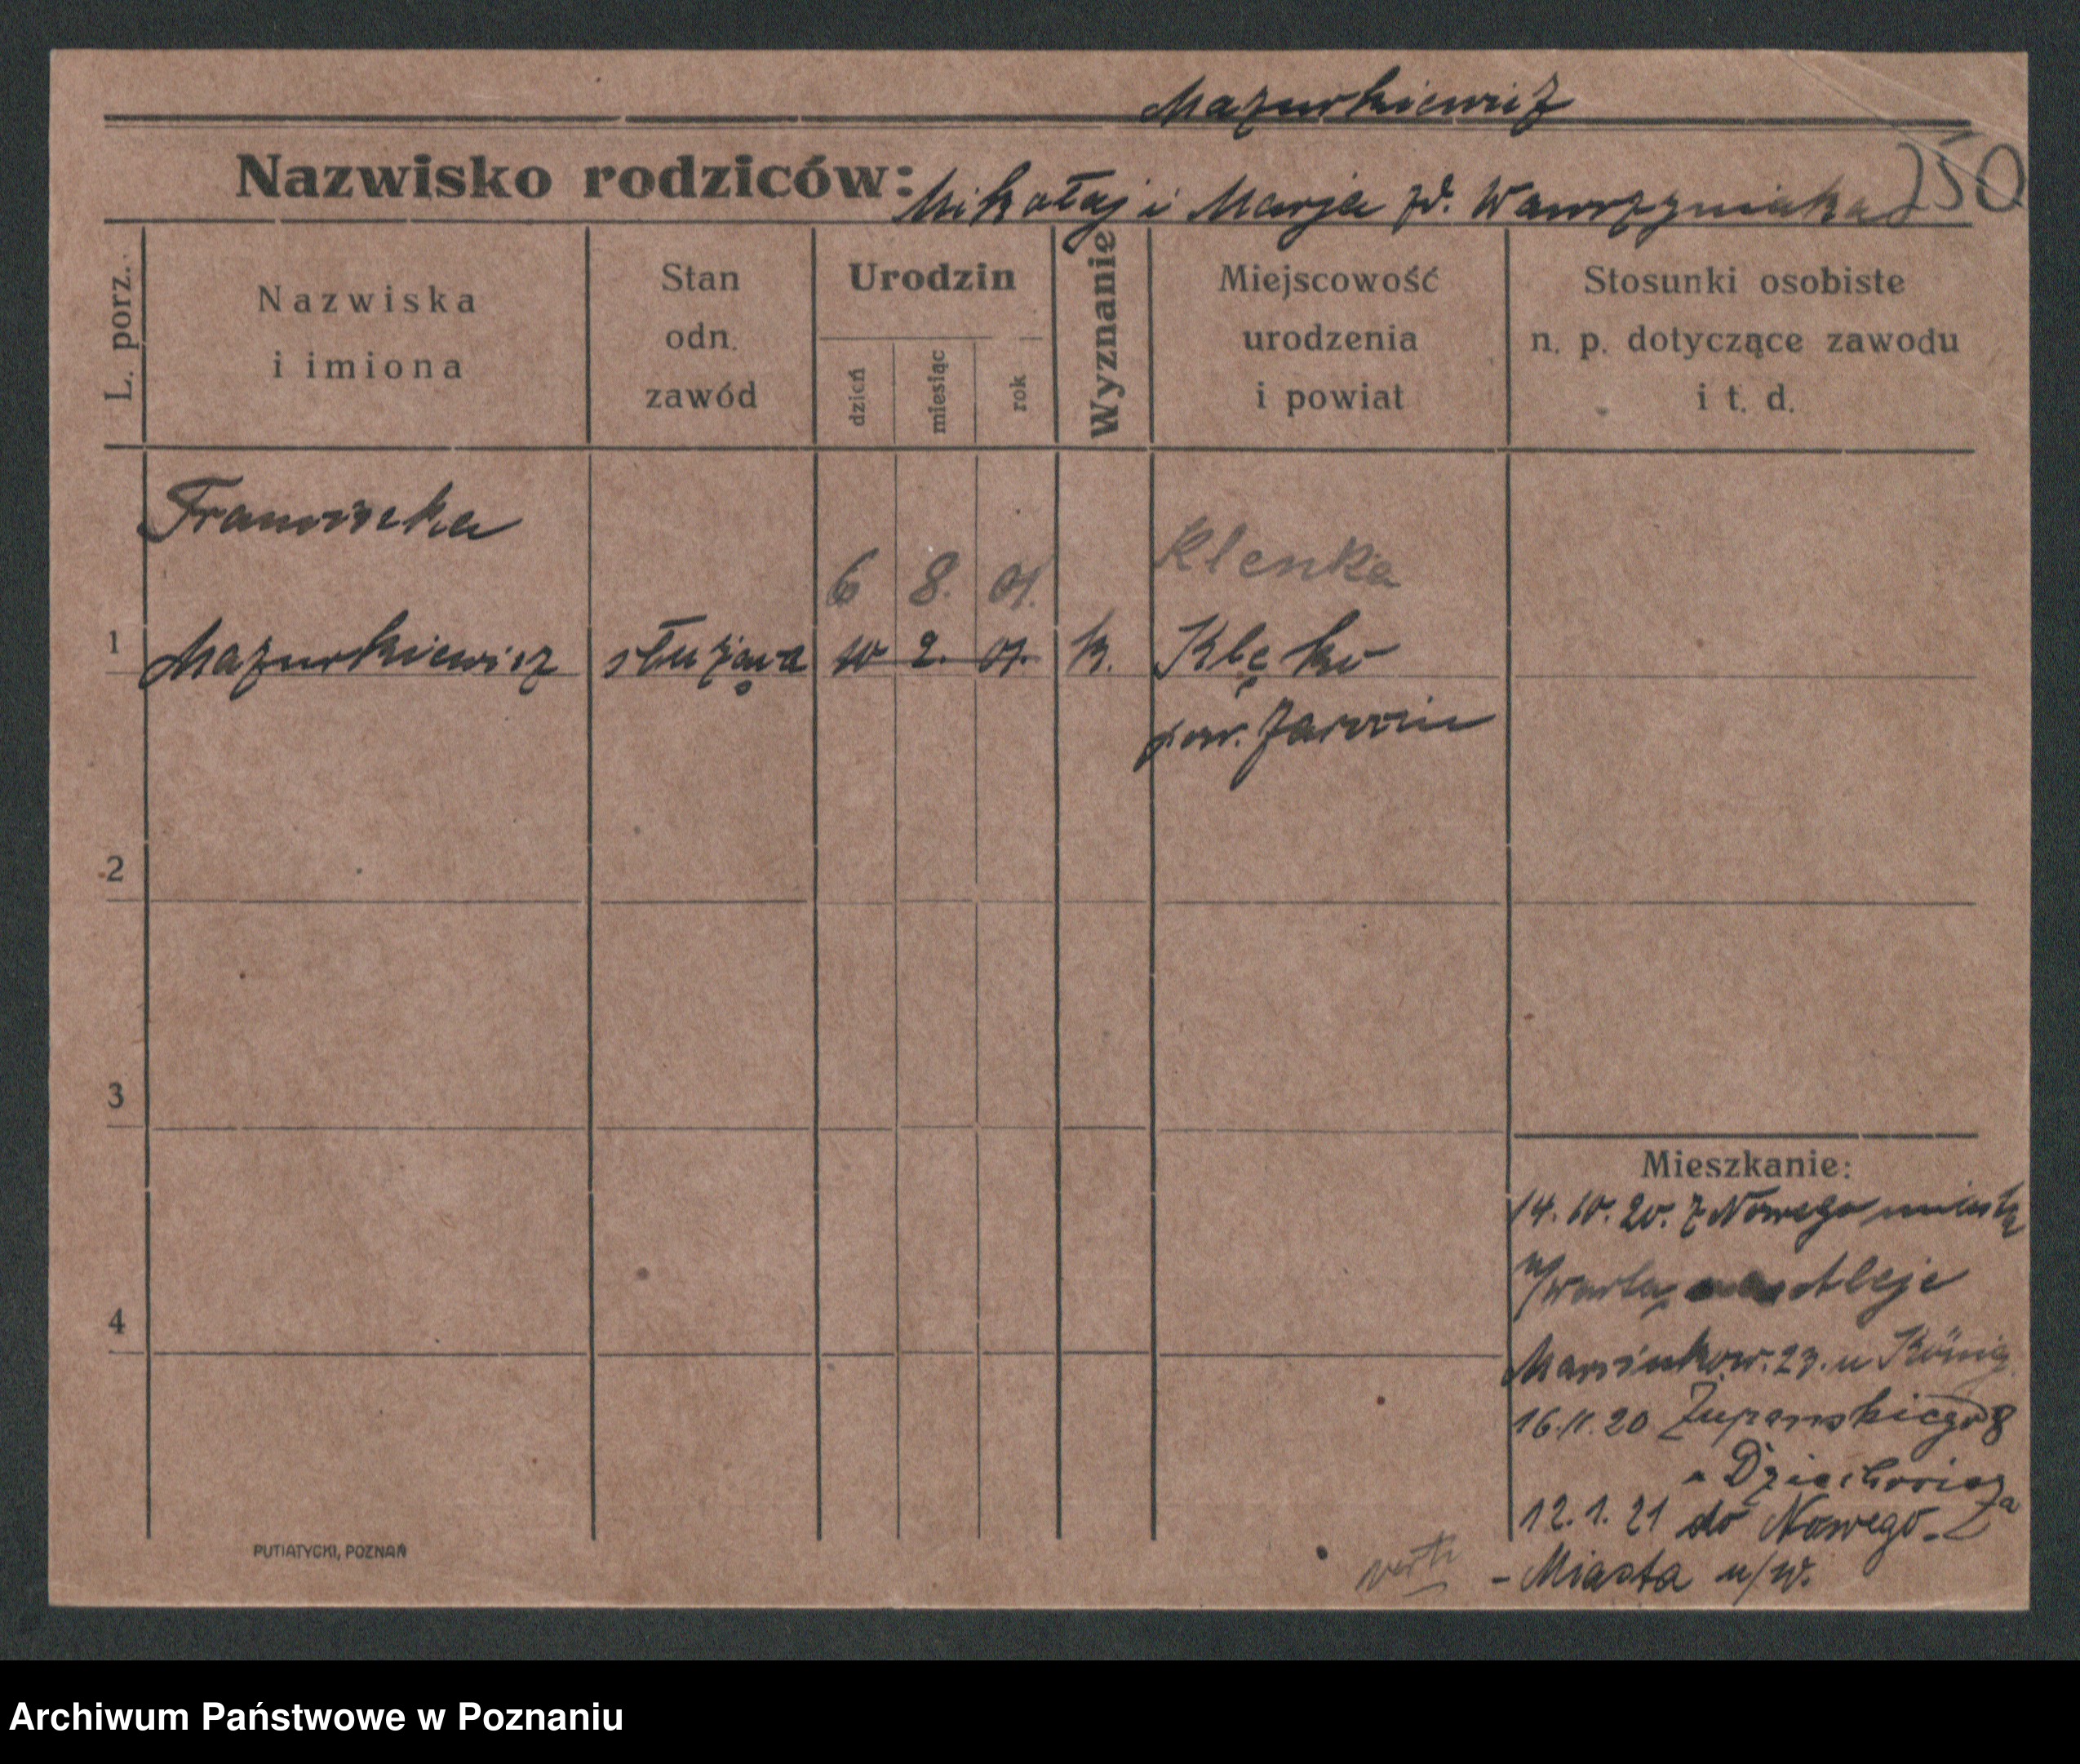 Mazurkiewicz
Nazwisko rodziców: Mikołaj i Marja zd. Wawrzyniaka 250
L. porz.
Nazwiska
i imiona
Stan
odn.
zawód
Urodzin
dzień
miesiąc
rok
Wyznanie
Miejscowość
urodzenia
i powiat
Stosunki osobiste
n. p. dotyczące zawodu
i t. d.
Franciszka
6 8. 01. Klenka
1 Mazurkiewicz służąca 10 2. 01. k. Klęka
pow. Jarocin
2
3
4
Mieszkanie:
14. 10. 20. z Nowego miasta
n/Wartą Aleje
Marcinkow. 23. u König
16.11.20 Żupańskiego 8
12.1.21 do Nowego-
-Miasta n/W.
verte
PUTIATYCKI, POZNAŃ
Archiwum Państwowe w Poznaniu